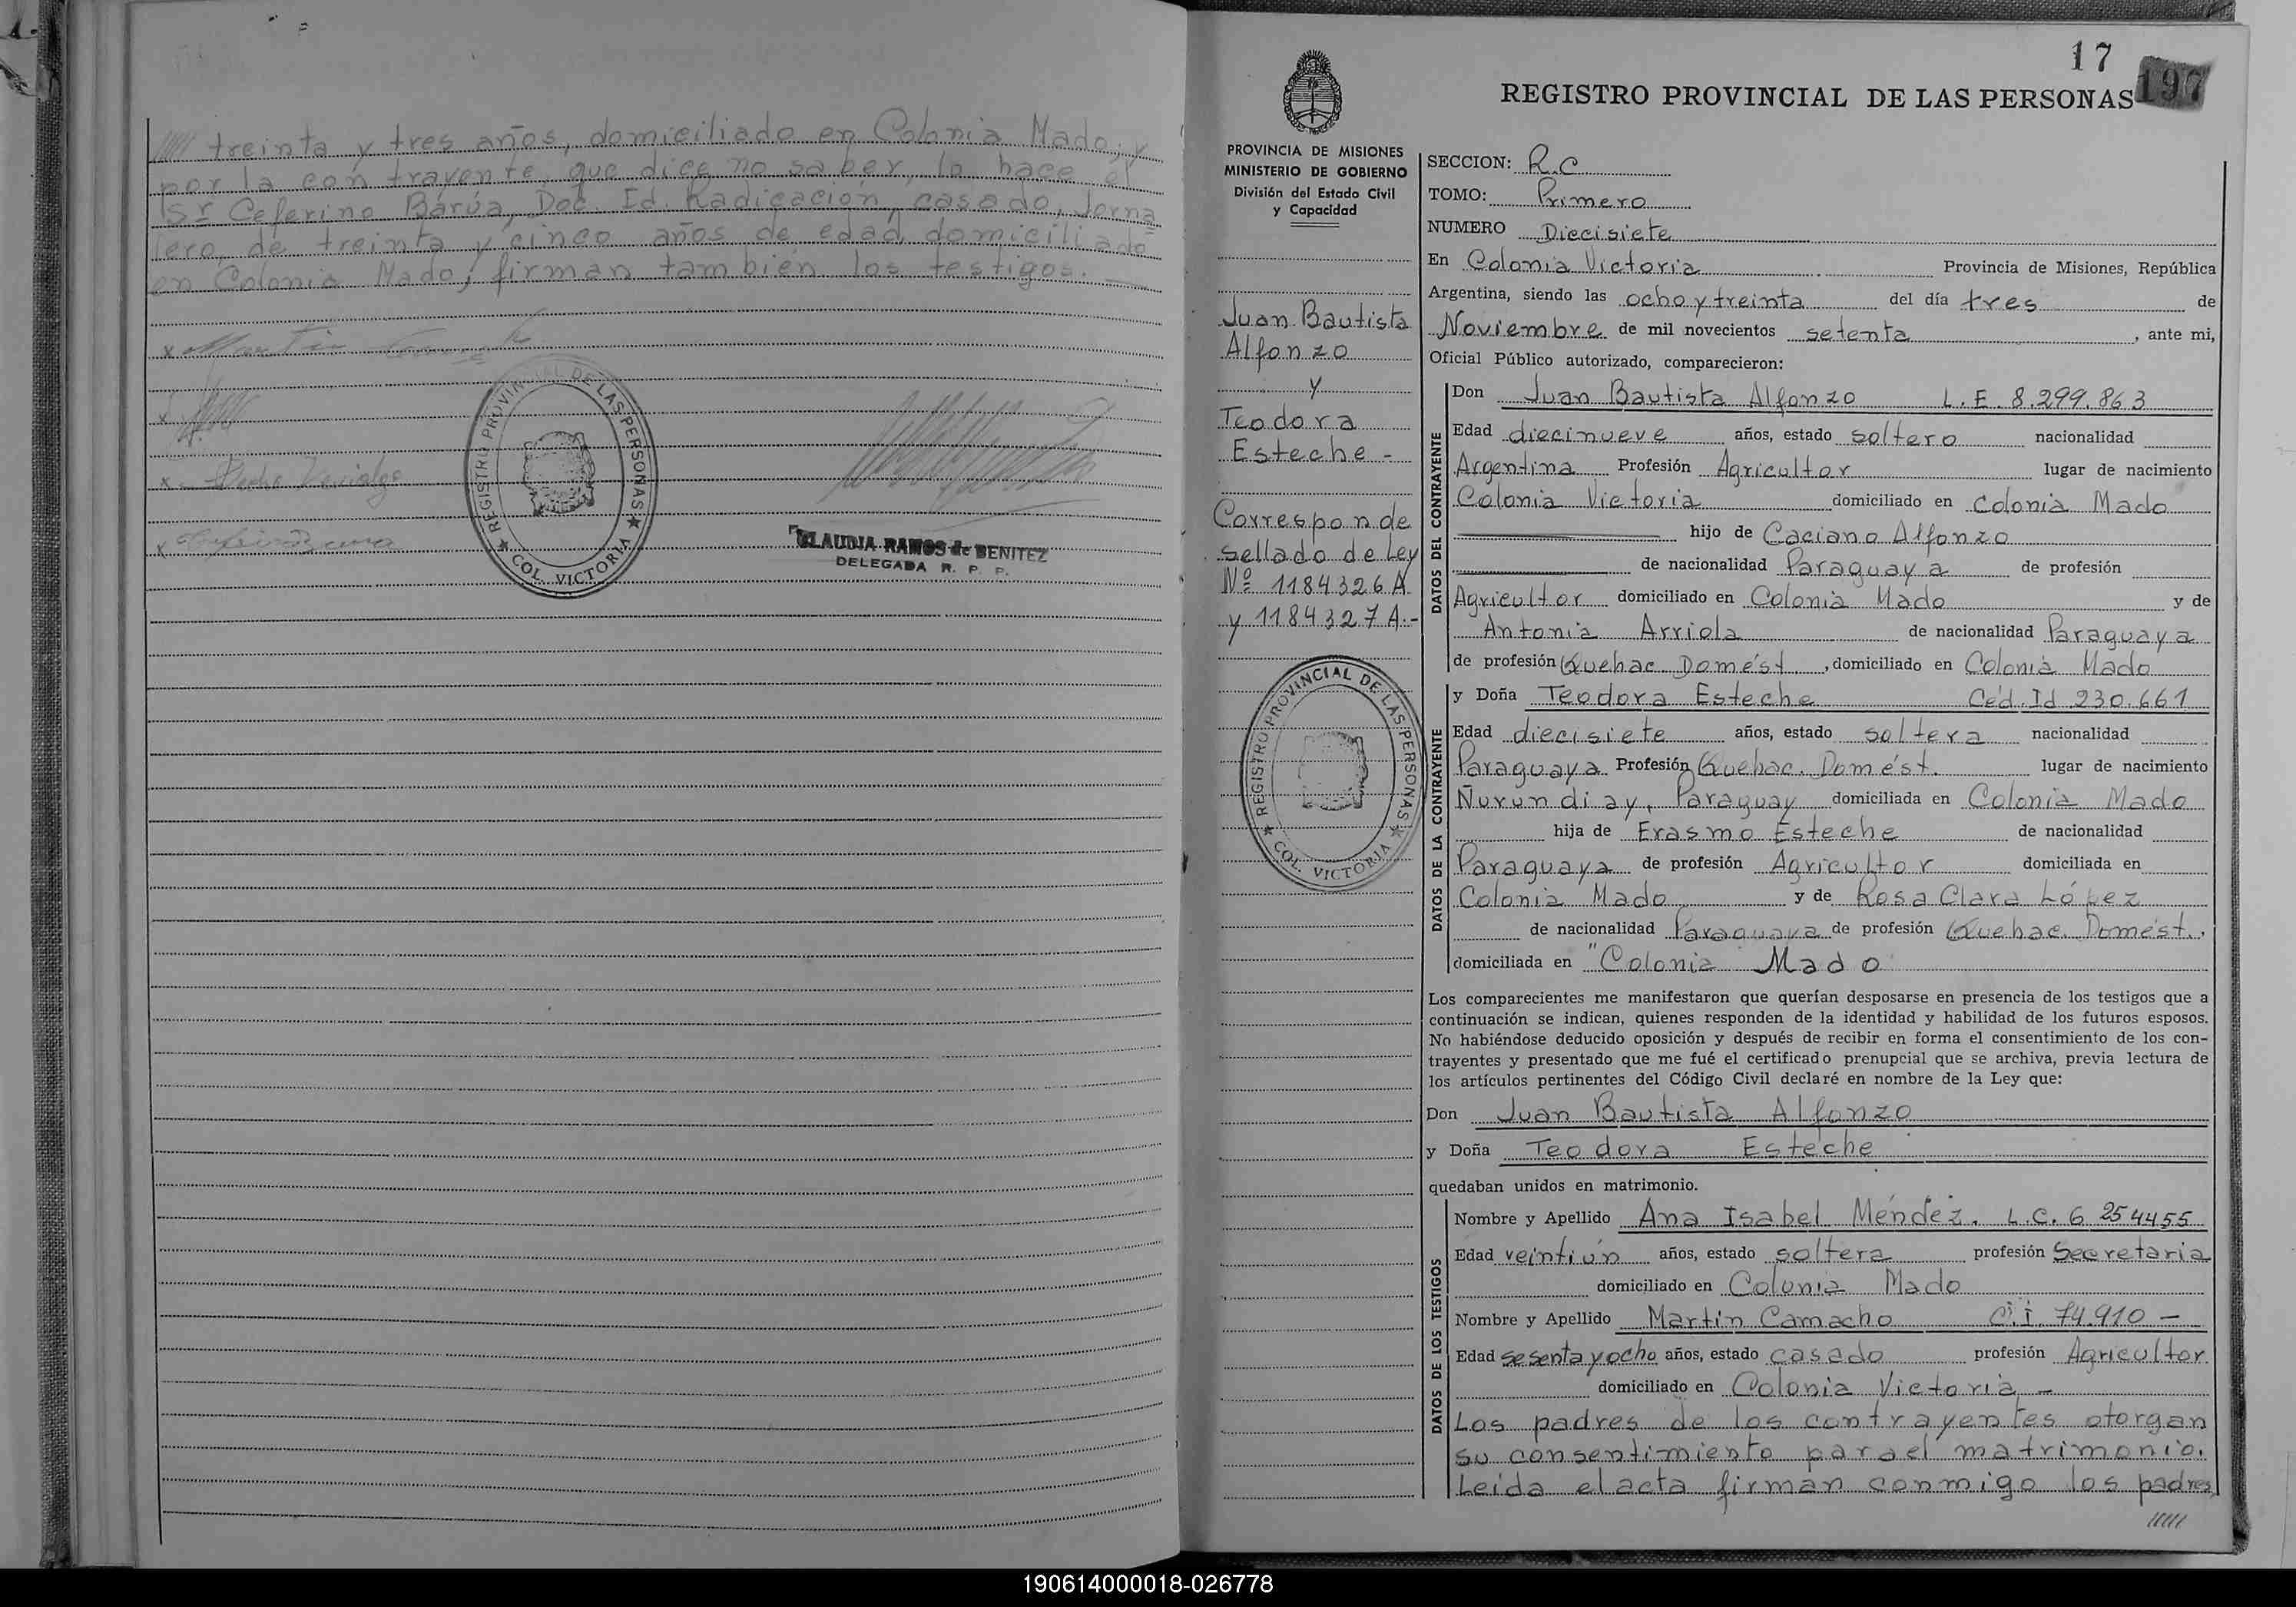 treinta y tres años, domiciliado en Colonia Mado; y
por la contrayente, que dice no saber, lo hace el
Sr Ceferino Barúa, Doc. Ed. Radicación, casado, Jorna
lero, de treinta y cinco años de edad, domiciliado
en Colonia Mado; firman también los testigos.
REGISTRO PROVINCIAL DE LAS PERSONAS
COL. VICTORIA
CLAUDIA RAMOS de BENITEZ
DELEGADA R. P. P.
17
197
REGISTRO PROVINCIAL DE LAS PERSONAS
PROVINCIA DE MISIONES
MINISTERIO DE GOBIERNO
División del Estado Civil
y Capacidad
Juan Bautista
Alfonzo
y
Teodora
Esteche -
Corresponde
sellado de Ley
Nº 1184326 A
y 1184327 A.-
REGISTRO PROVINCIAL DE LAS PERSONAS
COL. VICTORIA
SECCION: R.C
TOMO: Primero
NUMERO Diecisiete
En Colonia Victoria Provincia de Misiones, República
Argentina, siendo las ocho y treinta del día tres de
Noviembre de mil novecientos setenta, ante mi,
Oficial Público autorizado, comparecieron:
DATOS DEL CONTRAYENTE
Don Juan Bautista Alfonzo L.E. 8.299.863
Edad diecinueve años, estado soltero nacionalidad
Argentina Profesión Agricultor lugar de nacimiento
Colonia Victoria domiciliado en Colonia Mado
hijo de Caciano Alfonzo
de nacionalidad Paraguaya de profesión
Agricultor domiciliado en Colonia Mado y de
Antonia Arriola de nacionalidad Paraguaya
de profesión Quehac Domést, domiciliado en Colonia Mado
DATOS DE LA CONTRAYENTE
y Doña Teodora Esteche Céd. Id 230.661
Edad diecisiete años, estado soltera nacionalidad
Paraguaya Profesión Quehac. Domést. lugar de nacimiento
Ñurundiay, Paraguay domiciliada en Colonia Mado
hija de Erasmo Esteche de nacionalidad
Paraguaya de profesión Agricultor domiciliada en
Colonia Mado y de Rosa Clara López
de nacionalidad Paraguaya de profesión Quehac. Domést.,
domiciliada en "Colonia Mado
Los comparecientes me manifestaron que querían desposarse en presencia de los testigos que a
continuación se indican, quienes responden de la identidad y habilidad de los futuros esposos.
No habiéndose deducido oposición y después de recibir en forma el consentimiento de los con-
trayentes y presentado que me fué el certificado prenupcial que se archiva, previa lectura de
los artículos pertinentes del Código Civil declaré en nombre de la Ley que:
Don Juan Bautista Alfonzo
y Doña Teodora Esteche
quedaban unidos en matrimonio.
DATOS DE LOS TESTIGOS
Nombre y Apellido Ana Isabel Méndez. L.C. 6 254455
Edad veintiún años, estado soltera profesión Secretaria
domiciliado en Colonia Mado
Nombre y Apellido Martin Camacho C.i. 74.910 -
Edad sesenta y ocho años, estado casado profesión Agricultor
domiciliado en Colonia Victoria -
Los padres de los contrayentes otorgan
su consentimiento para el matrimonio.
Leída el acta firman conmigo los padres
190614000018-026778